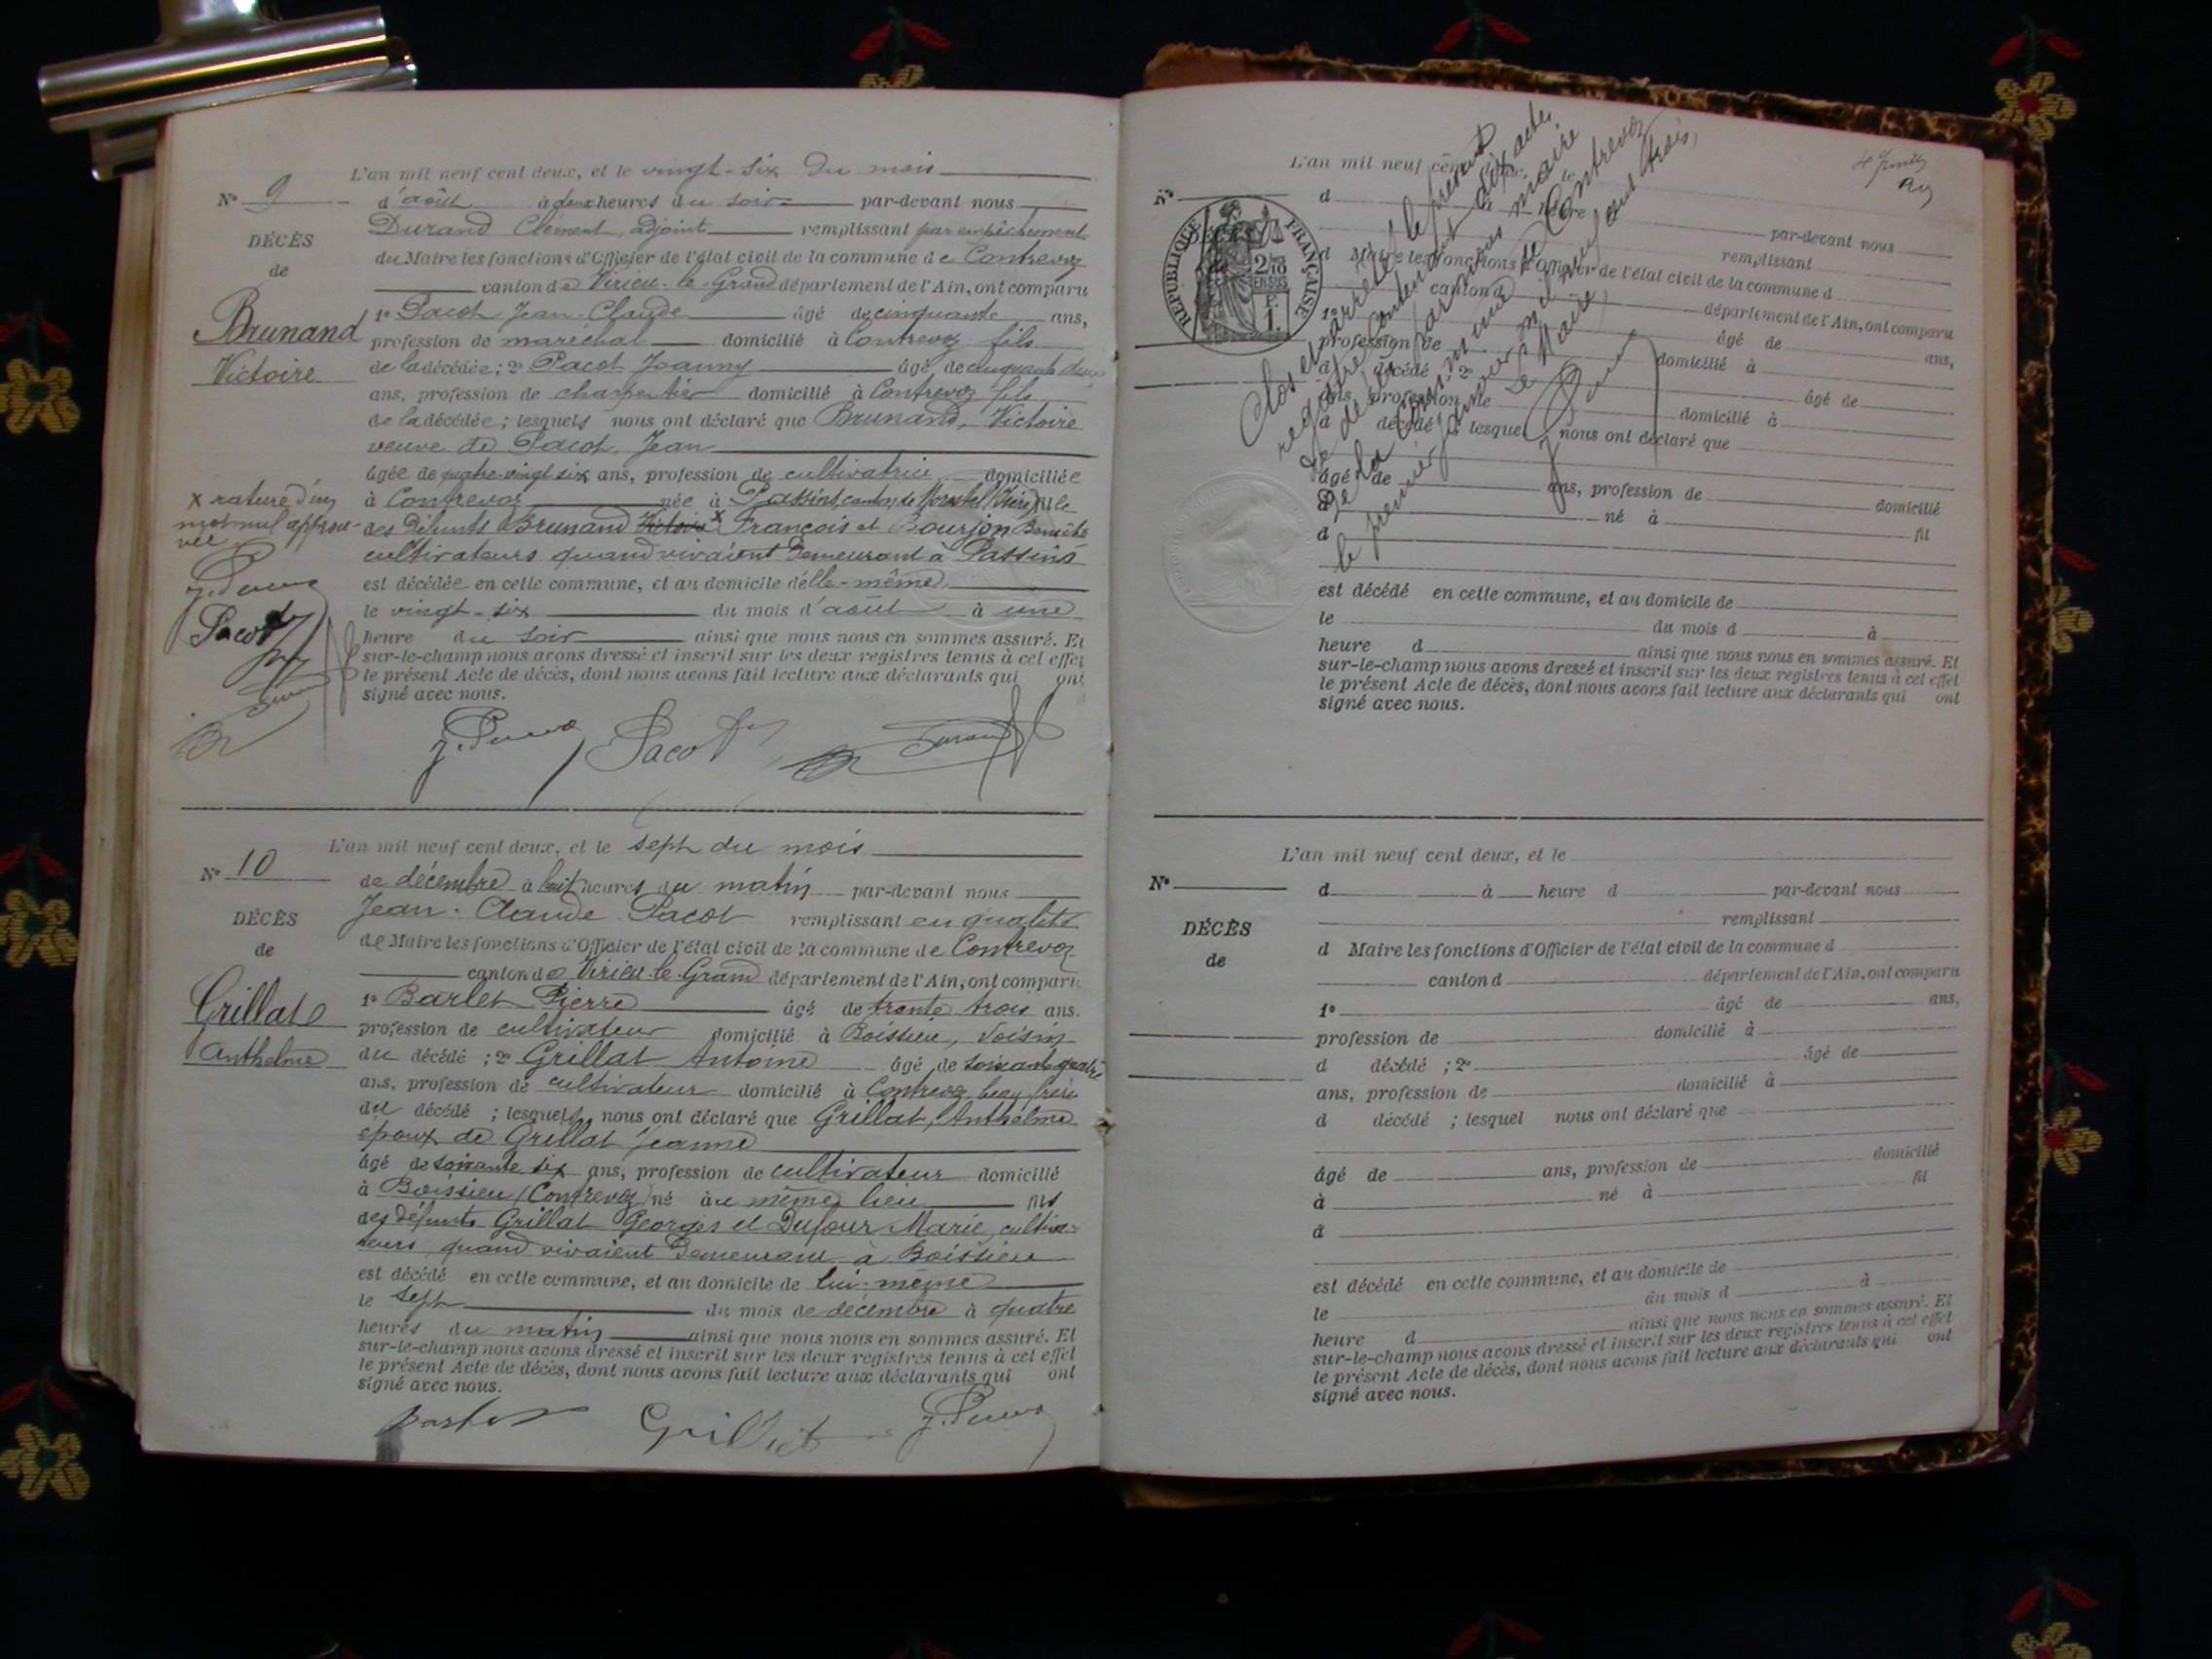 L'an mil neuf cent deux, et le vingt-six du mois
N° 9
d'août à deux heures du soir par-devant nous
DÉCÈS
de
Brunand
Victoire
Durand Clément, adjoint remplissant par empêchement
du Maire les fonctions d'Officier de l'état civil de la commune de Contrevoz
canton de Virieu-le-Grand département de l'Ain, ont comparu
1° Pacot Jean-Claude âgé de cinquante ans,
profession de maréchal domicilié à Contrevoz fils
de la décédée ; 2° Pacot Joanny âgé de cinquante deux
ans, profession de charpentier domicilié à Contrevoz fils
de la décédée ; lesquels nous ont déclaré que Brunand, Victoire
veuve de Pacot, Jean
âgée de quatre-vingt six ans, profession de cultivatrice domiciliée
à Contrevoz née à Passins, canton de Morestel (Isère) fille
des défunts Brunand Victoire x François et Bourjon Benoîte
cultivateurs quand vivaient demeurant à Passins
est décédée en cette commune, et au domicile d'elle-même
le vingt-six du mois d'août à une
heure du soir ainsi que nous nous en sommes assuré. Et
sur-le-champ nous avons dressé et inscrit sur les deux registres tenus à cet effet
le présent Acte de décès, dont nous avons fait lecture aux déclarants qui ont
signé avec nous.
x rature d'un
mot nul approu-
vée
Pacot
Durand
Pacot
Durand
L'an mil neuf cent deux, et le sept du mois
N° 10
de décembre à huit heures du matin par-devant nous
DÉCÈS
de
Grillat
Anthelme
Jean-Claude Pacot remplissant en qualité
de Maire les fonctions d'Officier de l'état civil de la commune de Contrevoz
canton de Virieu-le-Grand département de l'Ain, ont comparu
1° Barlet Pierre âgé de trente trois ans.
profession de cultivateur domicilié à Boissieu, voisin
du décédé ; 2° Grillat Antoine âgé de soixante quatre
ans, profession de cultivateur domicilié à Contrevoz, beau frère
du décédé ; lesquels nous ont déclaré que Grillat, Anthelme
époux de Grillat Jeanne
âgé de soixante six ans, profession de cultivateur domicilié
à Boissieu (Contrevoz) né au même lieu fils
des défunts Grillat Georges et Dufour Marie, cultiva-
teurs quand vivaient demeurant à Boissieu
est décédé en cette commune, et au domicile de lui-même
le sept du mois de décembre à quatre
heures du matin ainsi que nous nous en sommes assuré. Et
sur-le-champ nous avons dressé et inscrit sur les deux registres tenus à cet effet
le présent Acte de décès, dont nous avons fait lecture aux déclarants qui ont
signé avec nous.
Barlet Grillat
Clos et arrêté le présent
registre contenant dix actes
de décès par nous maire
de la commune de Contrevoz
le premier janvier mil neuf cent trois,
Le Maire,
RÉPUBLIQUE FRANÇAISE
2/10 EN SUS
1.
L'an mil neuf cent deux, et le
N°
d à heure d par-devant nous
remplissant
d Maire les fonctions d'Officier de l'état civil de la commune d
canton d département de l'Ain, ont comparu
1° âgé de ans,
profession de domicilié à
d décédé ; 2° âgé de
ans, profession de domicilié à
d décédé ; lesquel nous ont déclaré que
âgé de ans, profession de domicilié
à né à fil
d
est décédé en cette commune, et au domicile de
le du mois d à
heure d ainsi que nous nous en sommes assuré. Et
sur-le-champ nous avons dressé et inscrit sur les deux registres tenus à cet effet
le présent Acte de décès, dont nous avons fait lecture aux déclarants qui ont
signé avec nous.
L'an mil neuf cent deux, et le
N°
DÉCÈS
de
d à heure d par-devant nous
remplissant
d Maire les fonctions d'Officier de l'état civil de la commune d
canton d département de l'Ain, ont comparu
1° âgé de ans,
profession de domicilié à
d décédé ; 2° âgé de
ans, profession de domicilié à
d décédé ; lesquel nous ont déclaré que
âgé de ans, profession de domicilié
à né à fil
d
est décédé en cette commune, et au domicile de
le du mois d à
heure d ainsi que nous nous en sommes assuré. Et
sur-le-champ nous avons dressé et inscrit sur les deux registres tenus à cet effet
le présent Acte de décès, dont nous avons fait lecture aux déclarants qui ont
signé avec nous.